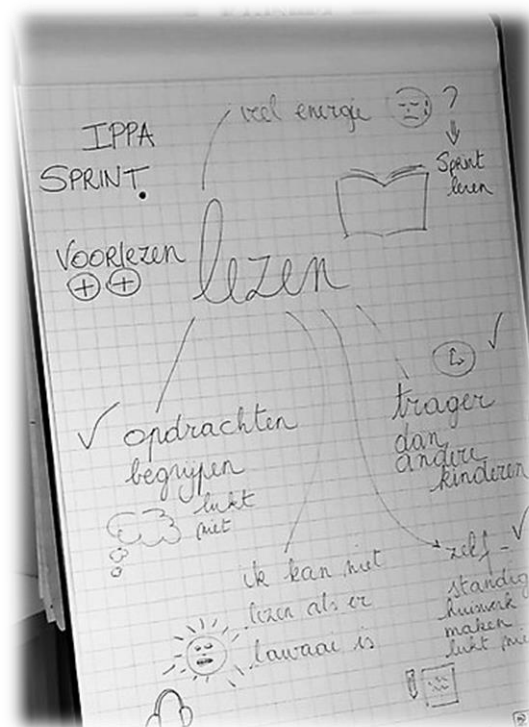 veel energie ?
IPPA
SPRINT.
Sprint
lezen
VOORlezen
lezen
opdrachten
begrijpen
lukt
niet
trager
dan
andere
kinderen
ik kan niet
lezen als er
lawaai is
zelf-
standig
huiswerk
maken
lukt